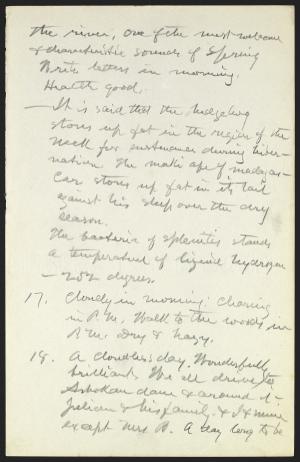 the river, one of the most welcome
& characteristic sounds of Spring
Write letters in morning.
Health good.
— It is said that the hedgehog
stores up fat in the region of the
neck for sustenance during hiber-
nation. The maki ape of Madagas-
car stores up fat in its tail
against his sleep over the dry
season.
The bacteria of splenitis stands
a temperature of liquid hydrogen
— 252 degrees.
17. Cloudy in morning: Clearing
in P.M. Walk to the woods in
P.M. Dry & hazy.
18. A cloudless day. Wonderfully
brilliant. We all drive to
Ashokan dam & around it —
Julian & his family & I & mine
except Mrs B. A day long to be